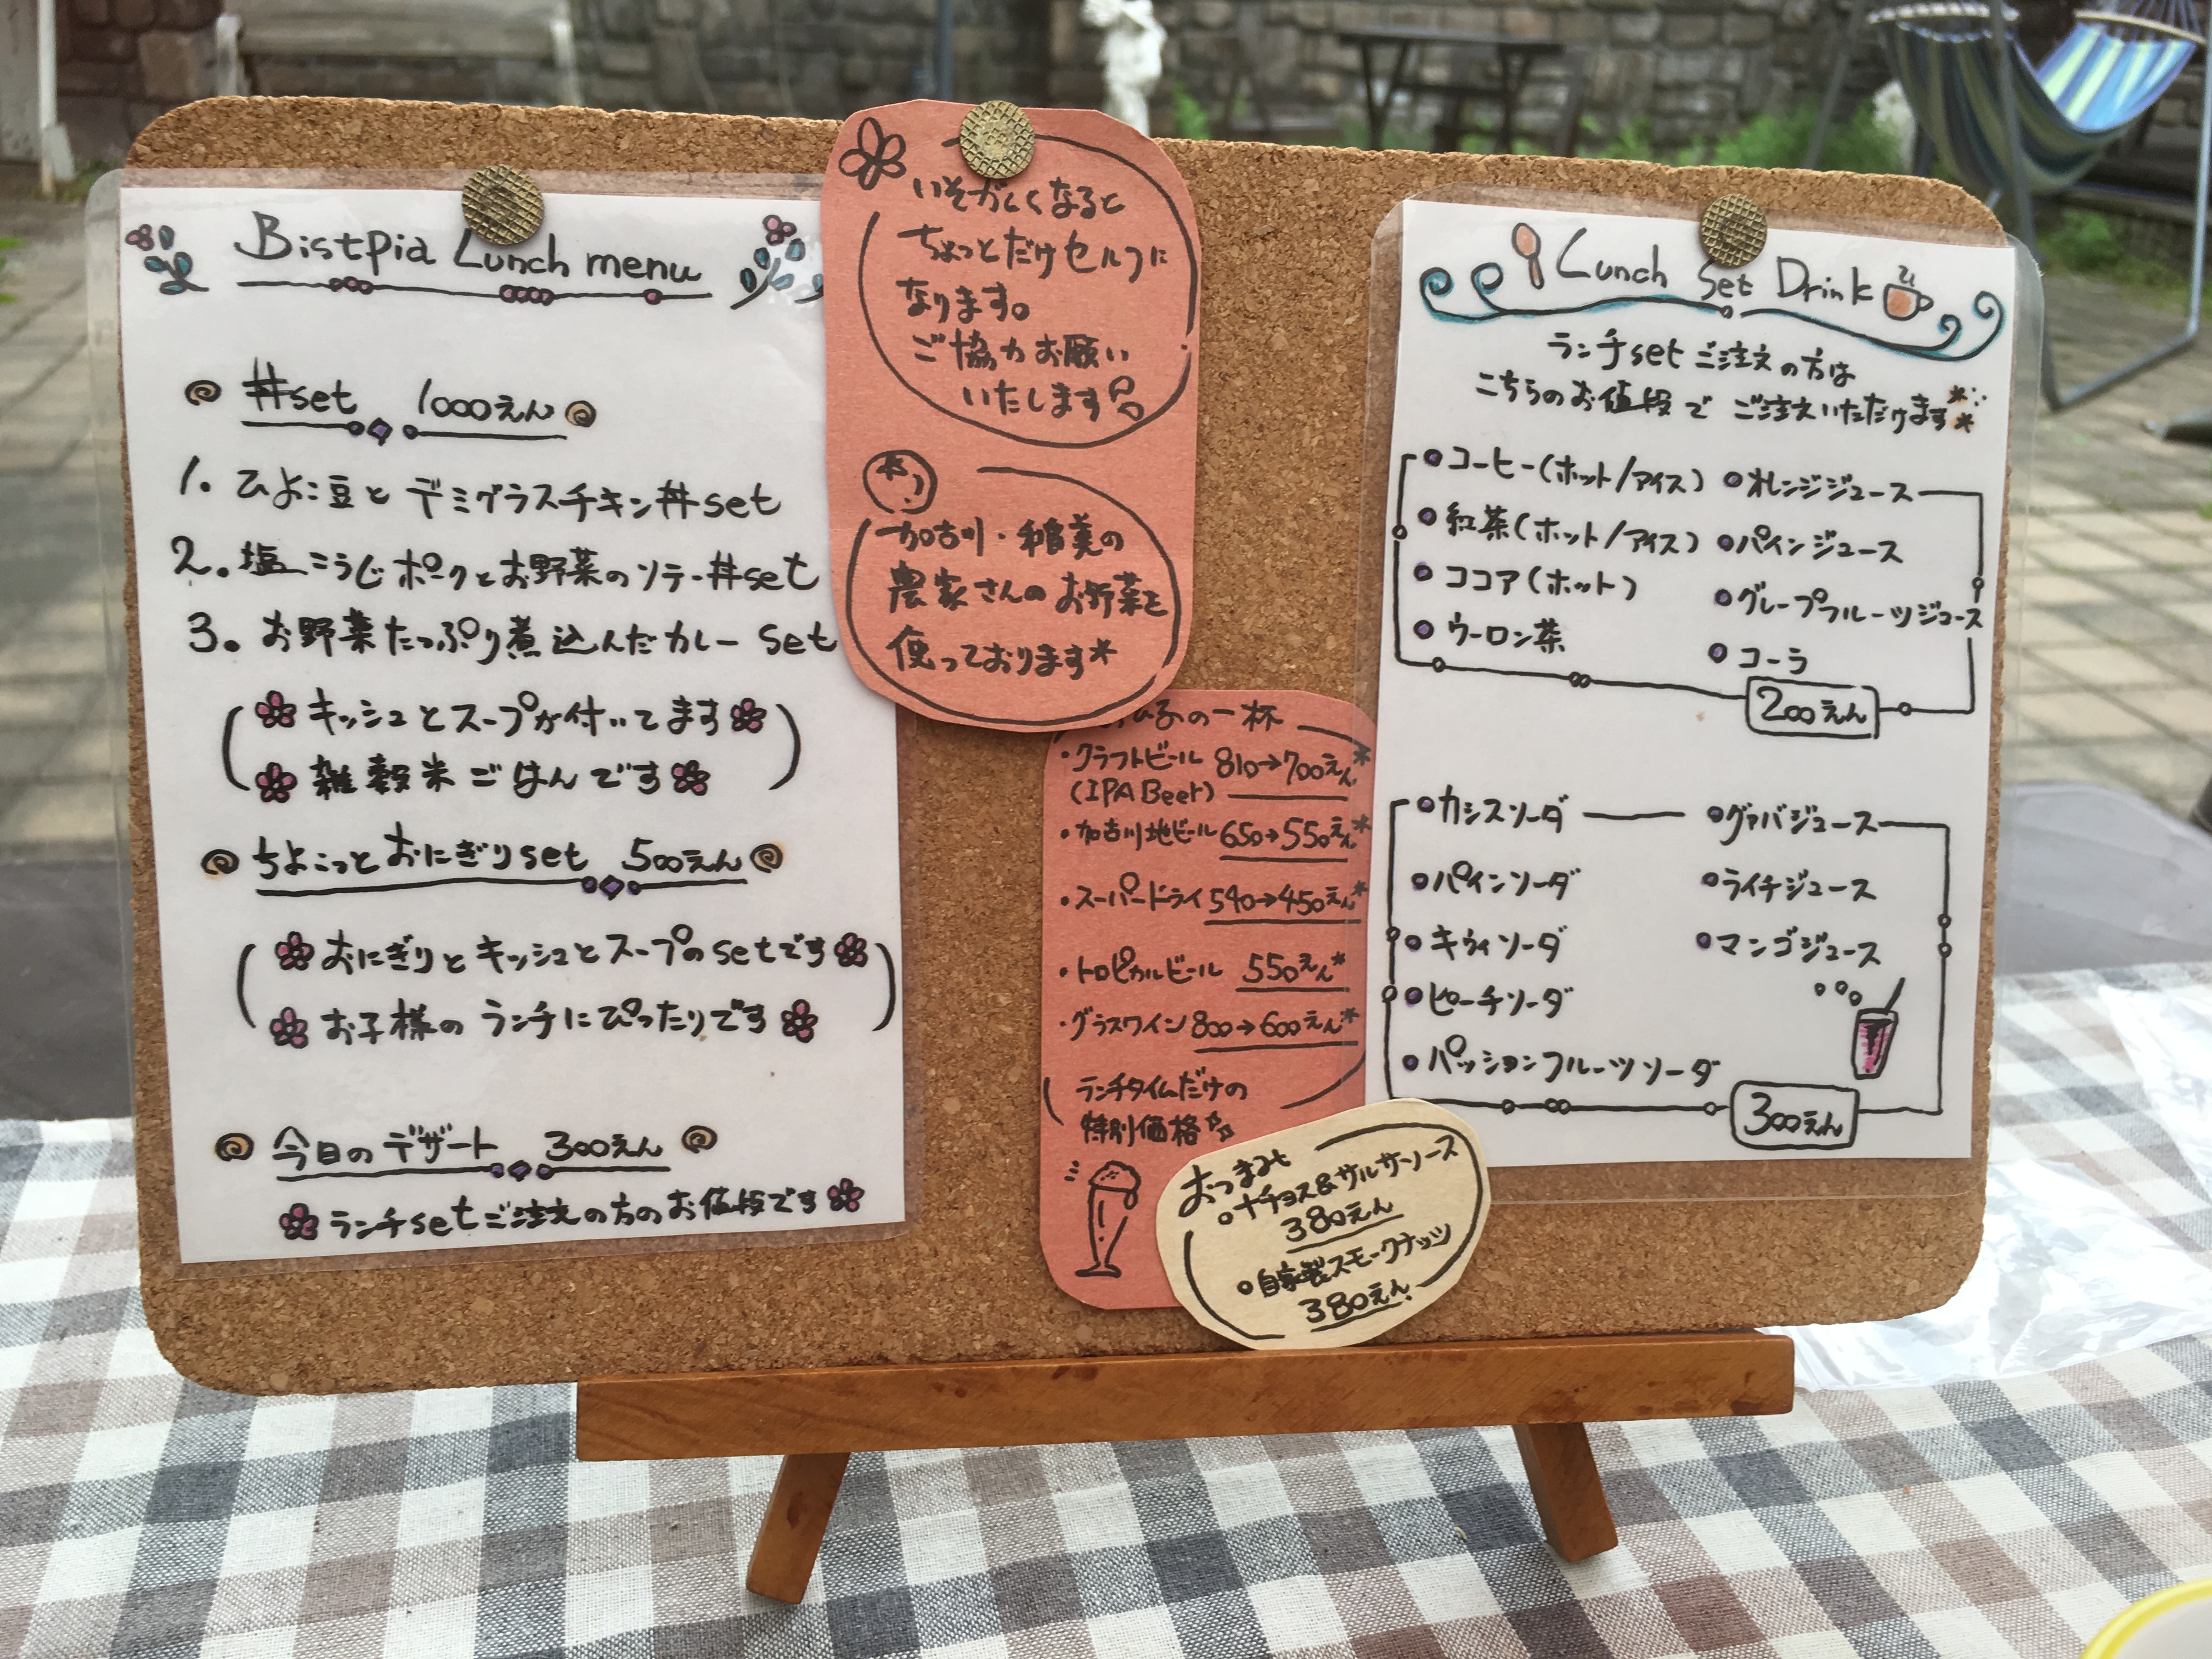 Bistpia Lunch menu
丼set 1000えん
1. ひよこ豆とデミグラスチキン丼set
2. 塩こうじポークとお野菜のソテー丼set
3. お野菜たっぷり煮込んだカレーset
(キッシュとスープが付いてます
雑穀米ごはんです)
ちょこっとおにぎりset 500えん
(おにぎりとキッシュとスープのsetです
お子様のランチにぴったりです)
今日のデザート 300えん
ランチsetご注文の方のお値段です
いそがしくなると
ちょっとだけセルフに
なります。
ご協力お願い
いたします
加古川・稲美の
農家さんのお野菜を
使っております*
の一杯
・クラフトビール 810→700えん*
(IPA Beer)
・加古川地ビール 650→550えん*
・スーパードライ 540→450えん*
・トロピカルビール 550えん*
・グラスワイン 800→600えん*
ランチタイムだけの
特別価格
おつまみ
ナチョス&サルサソース
380えん
自家製スモークナッツ
380えん
Lunch Set Drink
ランチsetご注文の方は
こちらのお値段でご注文いただけます
コーヒー(ホット/アイス) オレンジジュース
紅茶(ホット/アイス) パインジュース
ココア(ホット) グレープフルーツジュース
ウーロン茶 コーラ
200えん
カシスソーダ グァバジュース
パインソーダ ライチジュース
キウィソーダ マンゴジュース
ピーチソーダ
パッションフルーツソーダ
300えん